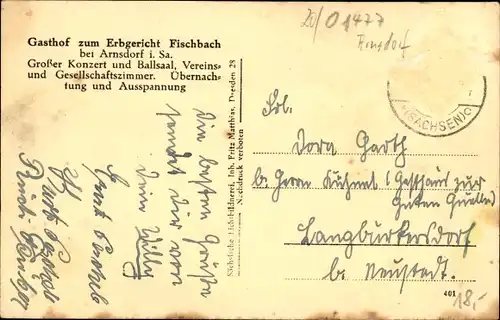 Gasthof zum Erbgericht Fischbach
bei Arnsdorf i. Sa.
Großer Konzert und Ballsaal, Vereins-
und Gesellschaftszimmer. Übernach-
tung und Ausspannung
Die besten Grüße
sendet Dir von
dein Willy
Kurt
Sächsische Lichtbildnerei, Inh. Fritz Matthias, Dresden 28
Nachdruck verboten
01477
Arnsdorf
(SACHSEN)
Frl.
Dora Garth
b. Herrn Kühnel (Gasthaus zur
Guten Quelle)
Langburkersdorf
b. Neustadt.
401
18,-